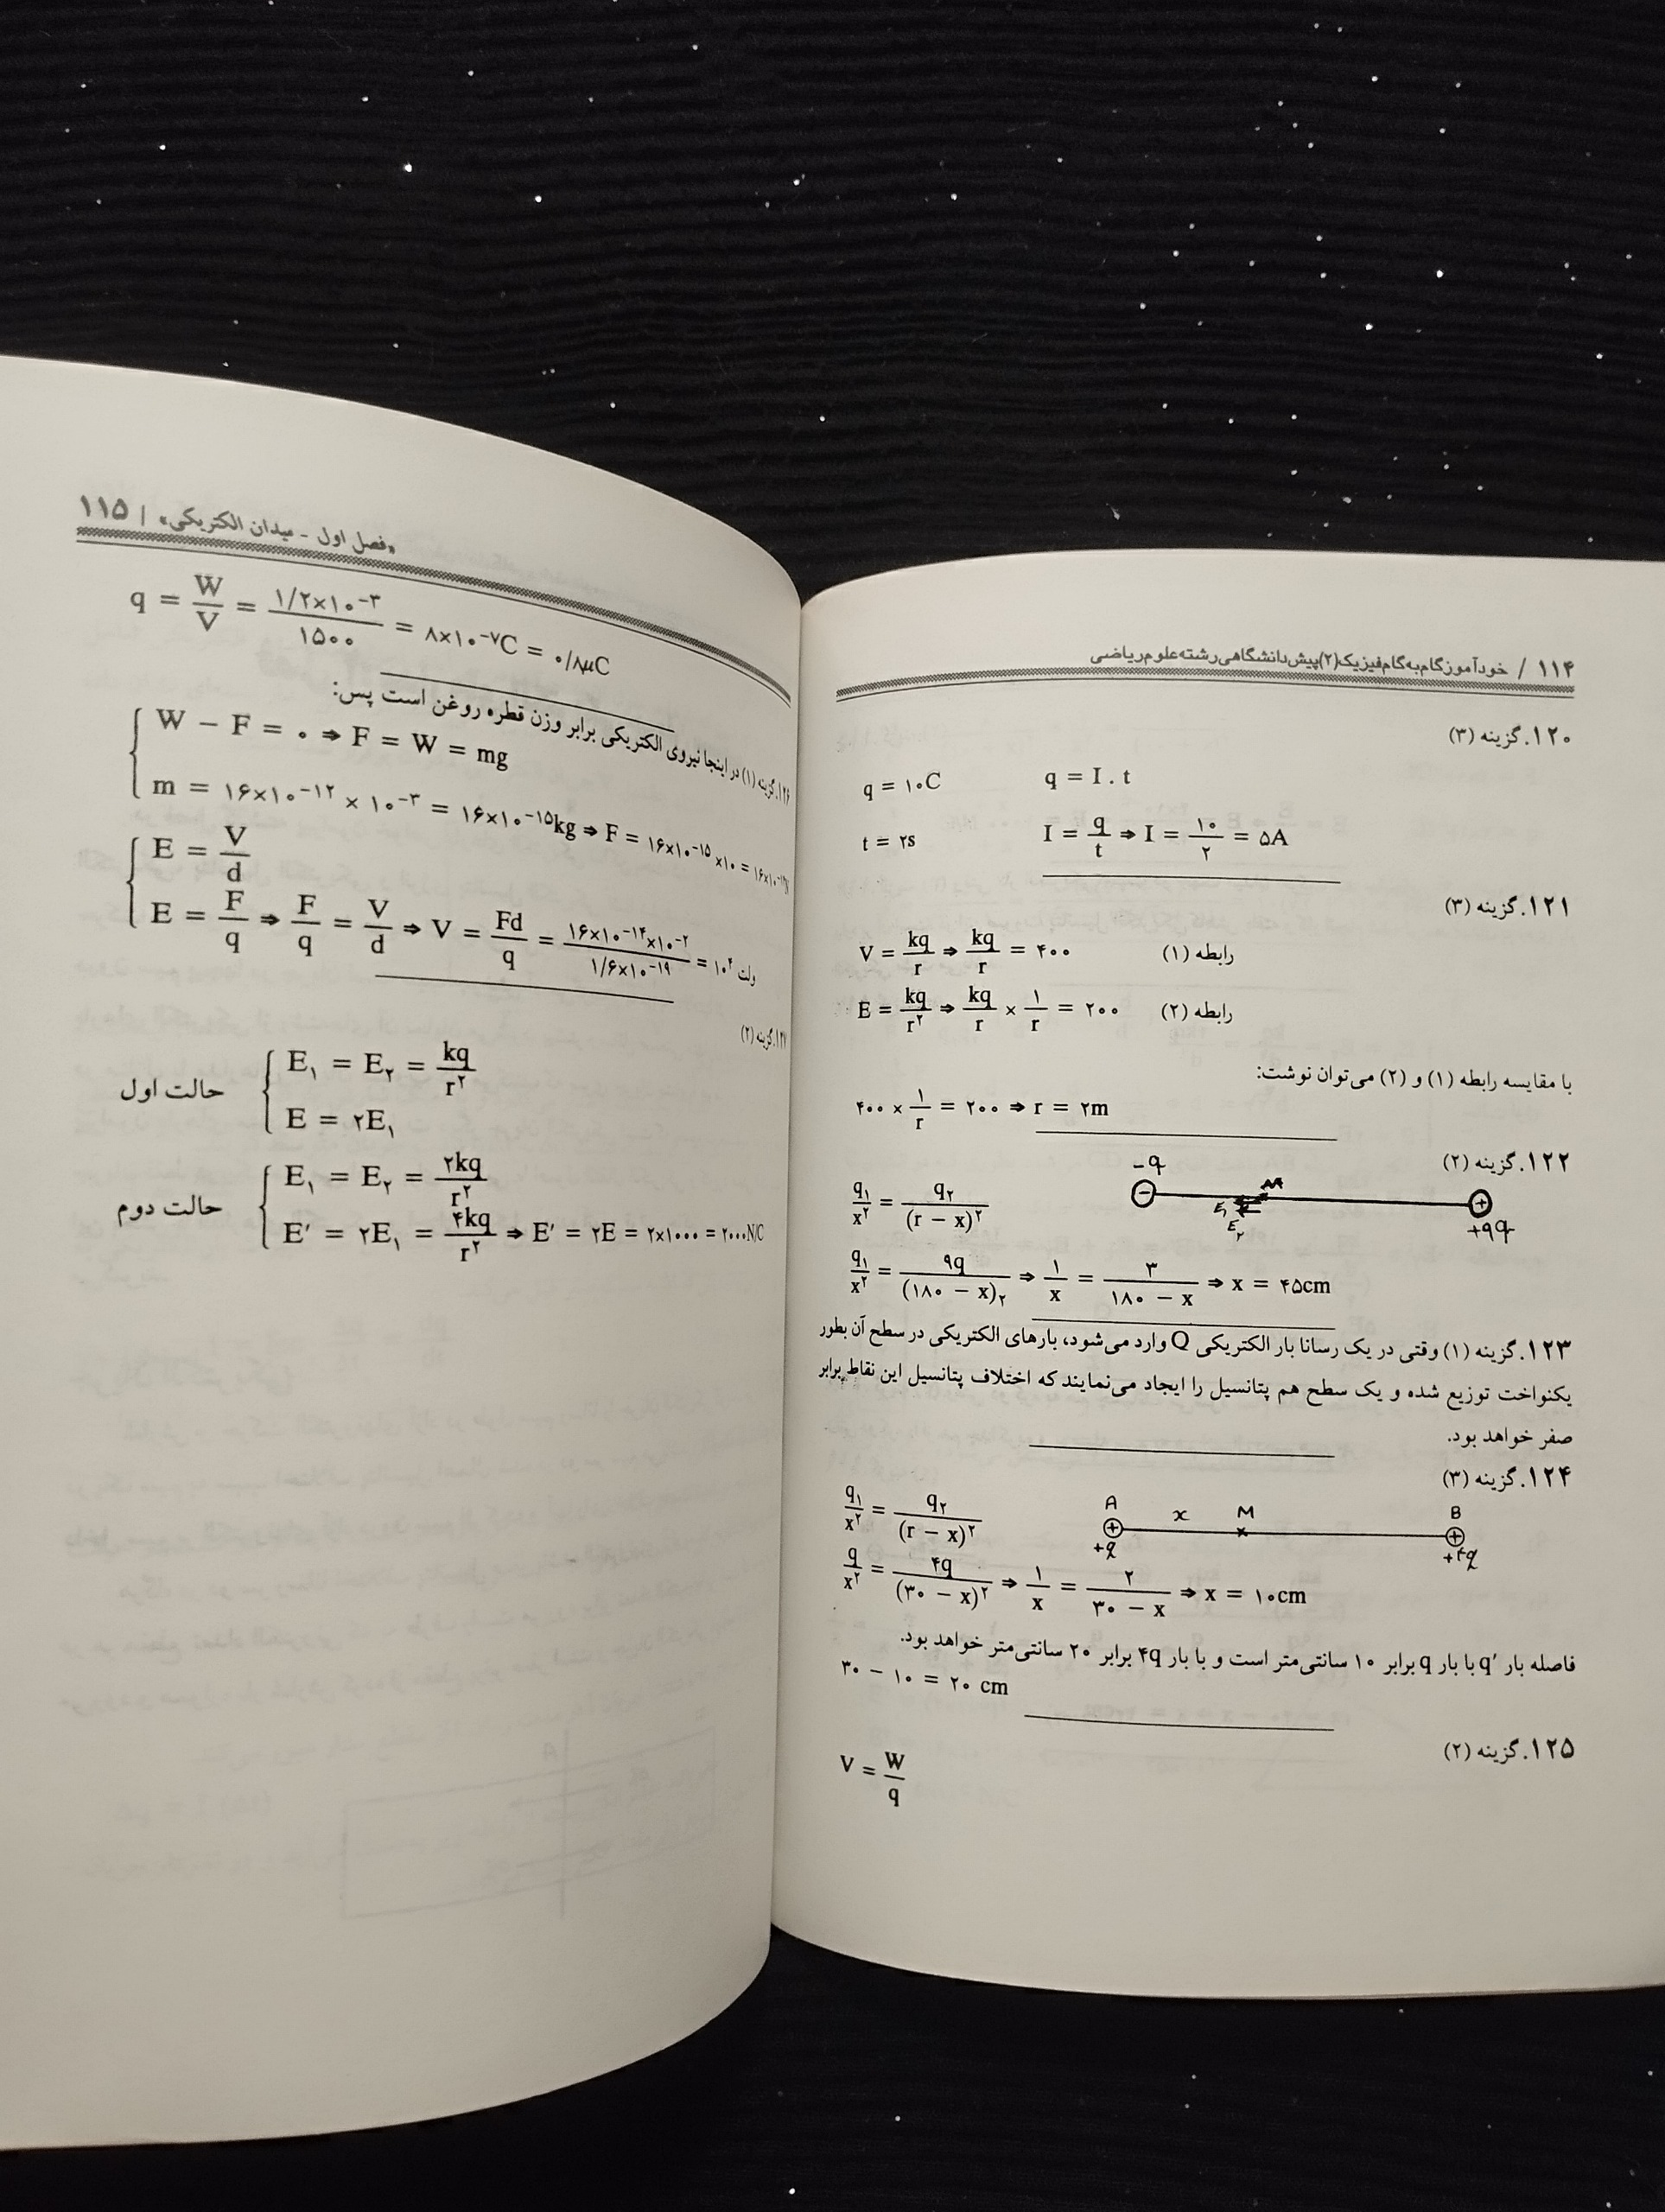 ۱۱۴ / خودآموز گام‌به‌گام فیزیک (۲) پیش‌دانشگاهی رشته علوم ریاضی
۱۲۰. گزینه (۳)
q = ۱۰C q = I . t
t = ۲s I = q/t ⇒ I = ۱۰/۲ = ۵A
۱۲۱. گزینه (۳)
V = kq/r ⇒ kq/r = ۴۰۰ رابطه (۱)
E = kq/r² ⇒ kq/r × ۱/r = ۲۰۰ رابطه (۲)
با مقایسه رابطه (۱) و (۲) می‌توان نوشت:
۴۰۰ × ۱/r = ۲۰۰ ⇒ r = ۲m
۱۲۲. گزینه (۲)
-q M +۹q
E₁ E₂
q₁/x² = q₂/(r − x)²
q₁/x² = ۹q/(۱۸۰ − x)₂ ⇒ ۱/x = ۳/(۱۸۰ − x) ⇒ x = ۴۵cm
۱۲۳. گزینه (۱) وقتی در یک رسانا بار الکتریکی Q وارد می‌شود، بارهای الکتریکی در سطح آن بطور
یکنواخت توزیع شده و یک سطح هم پتانسیل را ایجاد می‌نمایند که اختلاف پتانسیل این نقاط برابر
صفر خواهد بود.
۱۲۴. گزینه (۳)
A x M B
+q +۴q
q₁/x² = q₂/(r − x)²
q/x² = ۴q/(۳۰ − x)² ⇒ ۱/x = ۲/(۳۰ − x) ⇒ x = ۱۰cm
فاصله بار q′ با بار q برابر ۱۰ سانتی‌متر است و با بار ۴q برابر ۲۰ سانتی‌متر خواهد بود.
۳۰ − ۱۰ = ۲۰ cm
۱۲۵. گزینه (۲)
V = W/q
«فصل اول - میدان الکتریکی» | ۱۱۵
q = W/V = ۱/۲×۱۰⁻³/۱۵۰۰ = ۸×۱۰⁻⁷C = ۰/۸μC
۱۲۶. گزینه (۱) در اینجا نیروی الکتریکی برابر وزن قطره روغن است پس:
W − F = ۰ ⇒ F = W = mg
m = ۱۶×۱۰⁻¹² × ۱۰⁻³ = ۱۶×۱۰⁻¹⁵kg ⇒ F = ۱۶×۱۰⁻¹⁵ ×۱۰ = ۱۶×۱۰⁻¹⁴N
E = V/d
E = F/q ⇒ F/q = V/d ⇒ V = Fd/q = ۱۶×۱۰⁻¹⁴×۱۰⁻²/۱/۶×۱۰⁻¹⁹ = ۱۰⁴ ولت
۱۲۷. گزینه (۲)
حالت اول E₁ = E₂ = kq/r²
E = ۲E₁
حالت دوم E₁ = E₂ = ۲kq/r²
E′ = ۲E₁ = ۴kq/r² ⇒ E′ = ۲E = ۲×۱۰۰۰ = ۲۰۰۰N/C